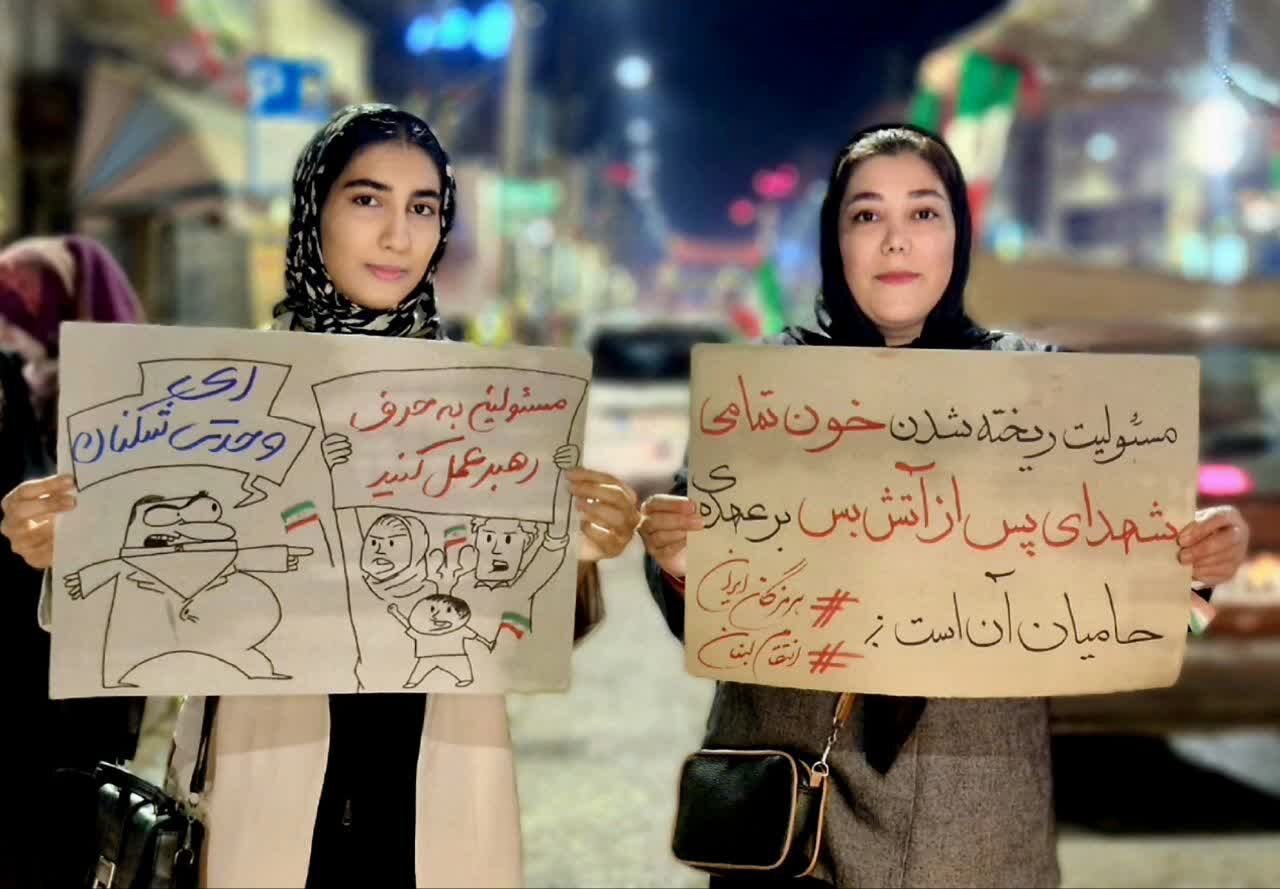 ای
وحدت شکنان
مسئولین به حرف
رهبر عمل کنید
مسئولیت ریخته شدن خون تمامی
شهدای پس از آتش بس بر عهده‌ی
حامیان آن است
#هرمزگان_ایران
#انتقام_لبنان
P